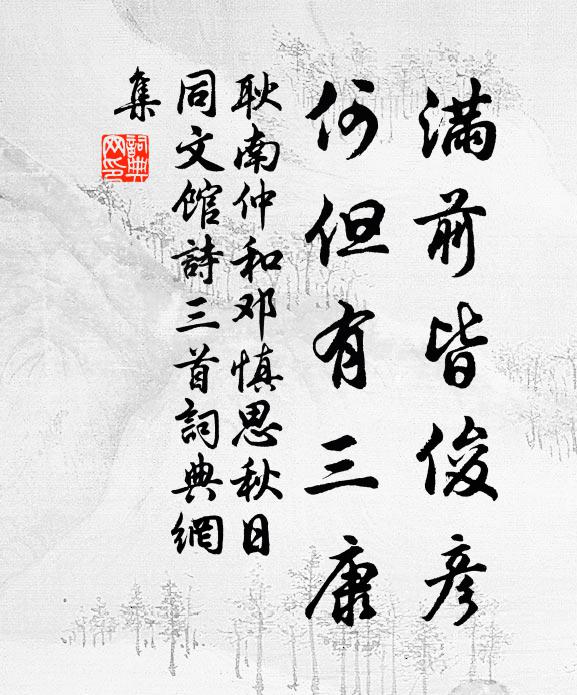 滿前皆俊彥
何但有三康
耿南仲和邓慎思秋日
同文館詩三首詞典網
集
詞典
网印